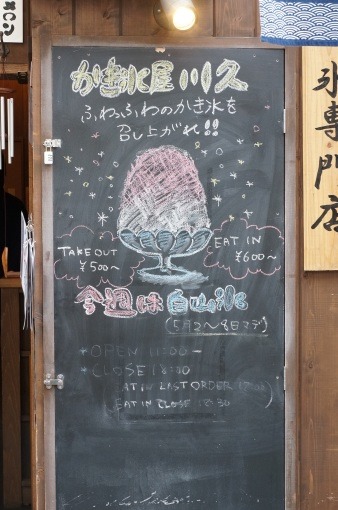 かき氷屋 川久
ふわっふわのかき氷を
召し上がれ!!
TAKEOUT
¥500〜
EAT IN
¥600〜
今週は白山氷
(5月2〜8日マデ)
*OPEN 11:00〜
*CLOSE 18:00
EAT IN LAST ORDER
EAT IN CLOSE 18:30
氷専門店